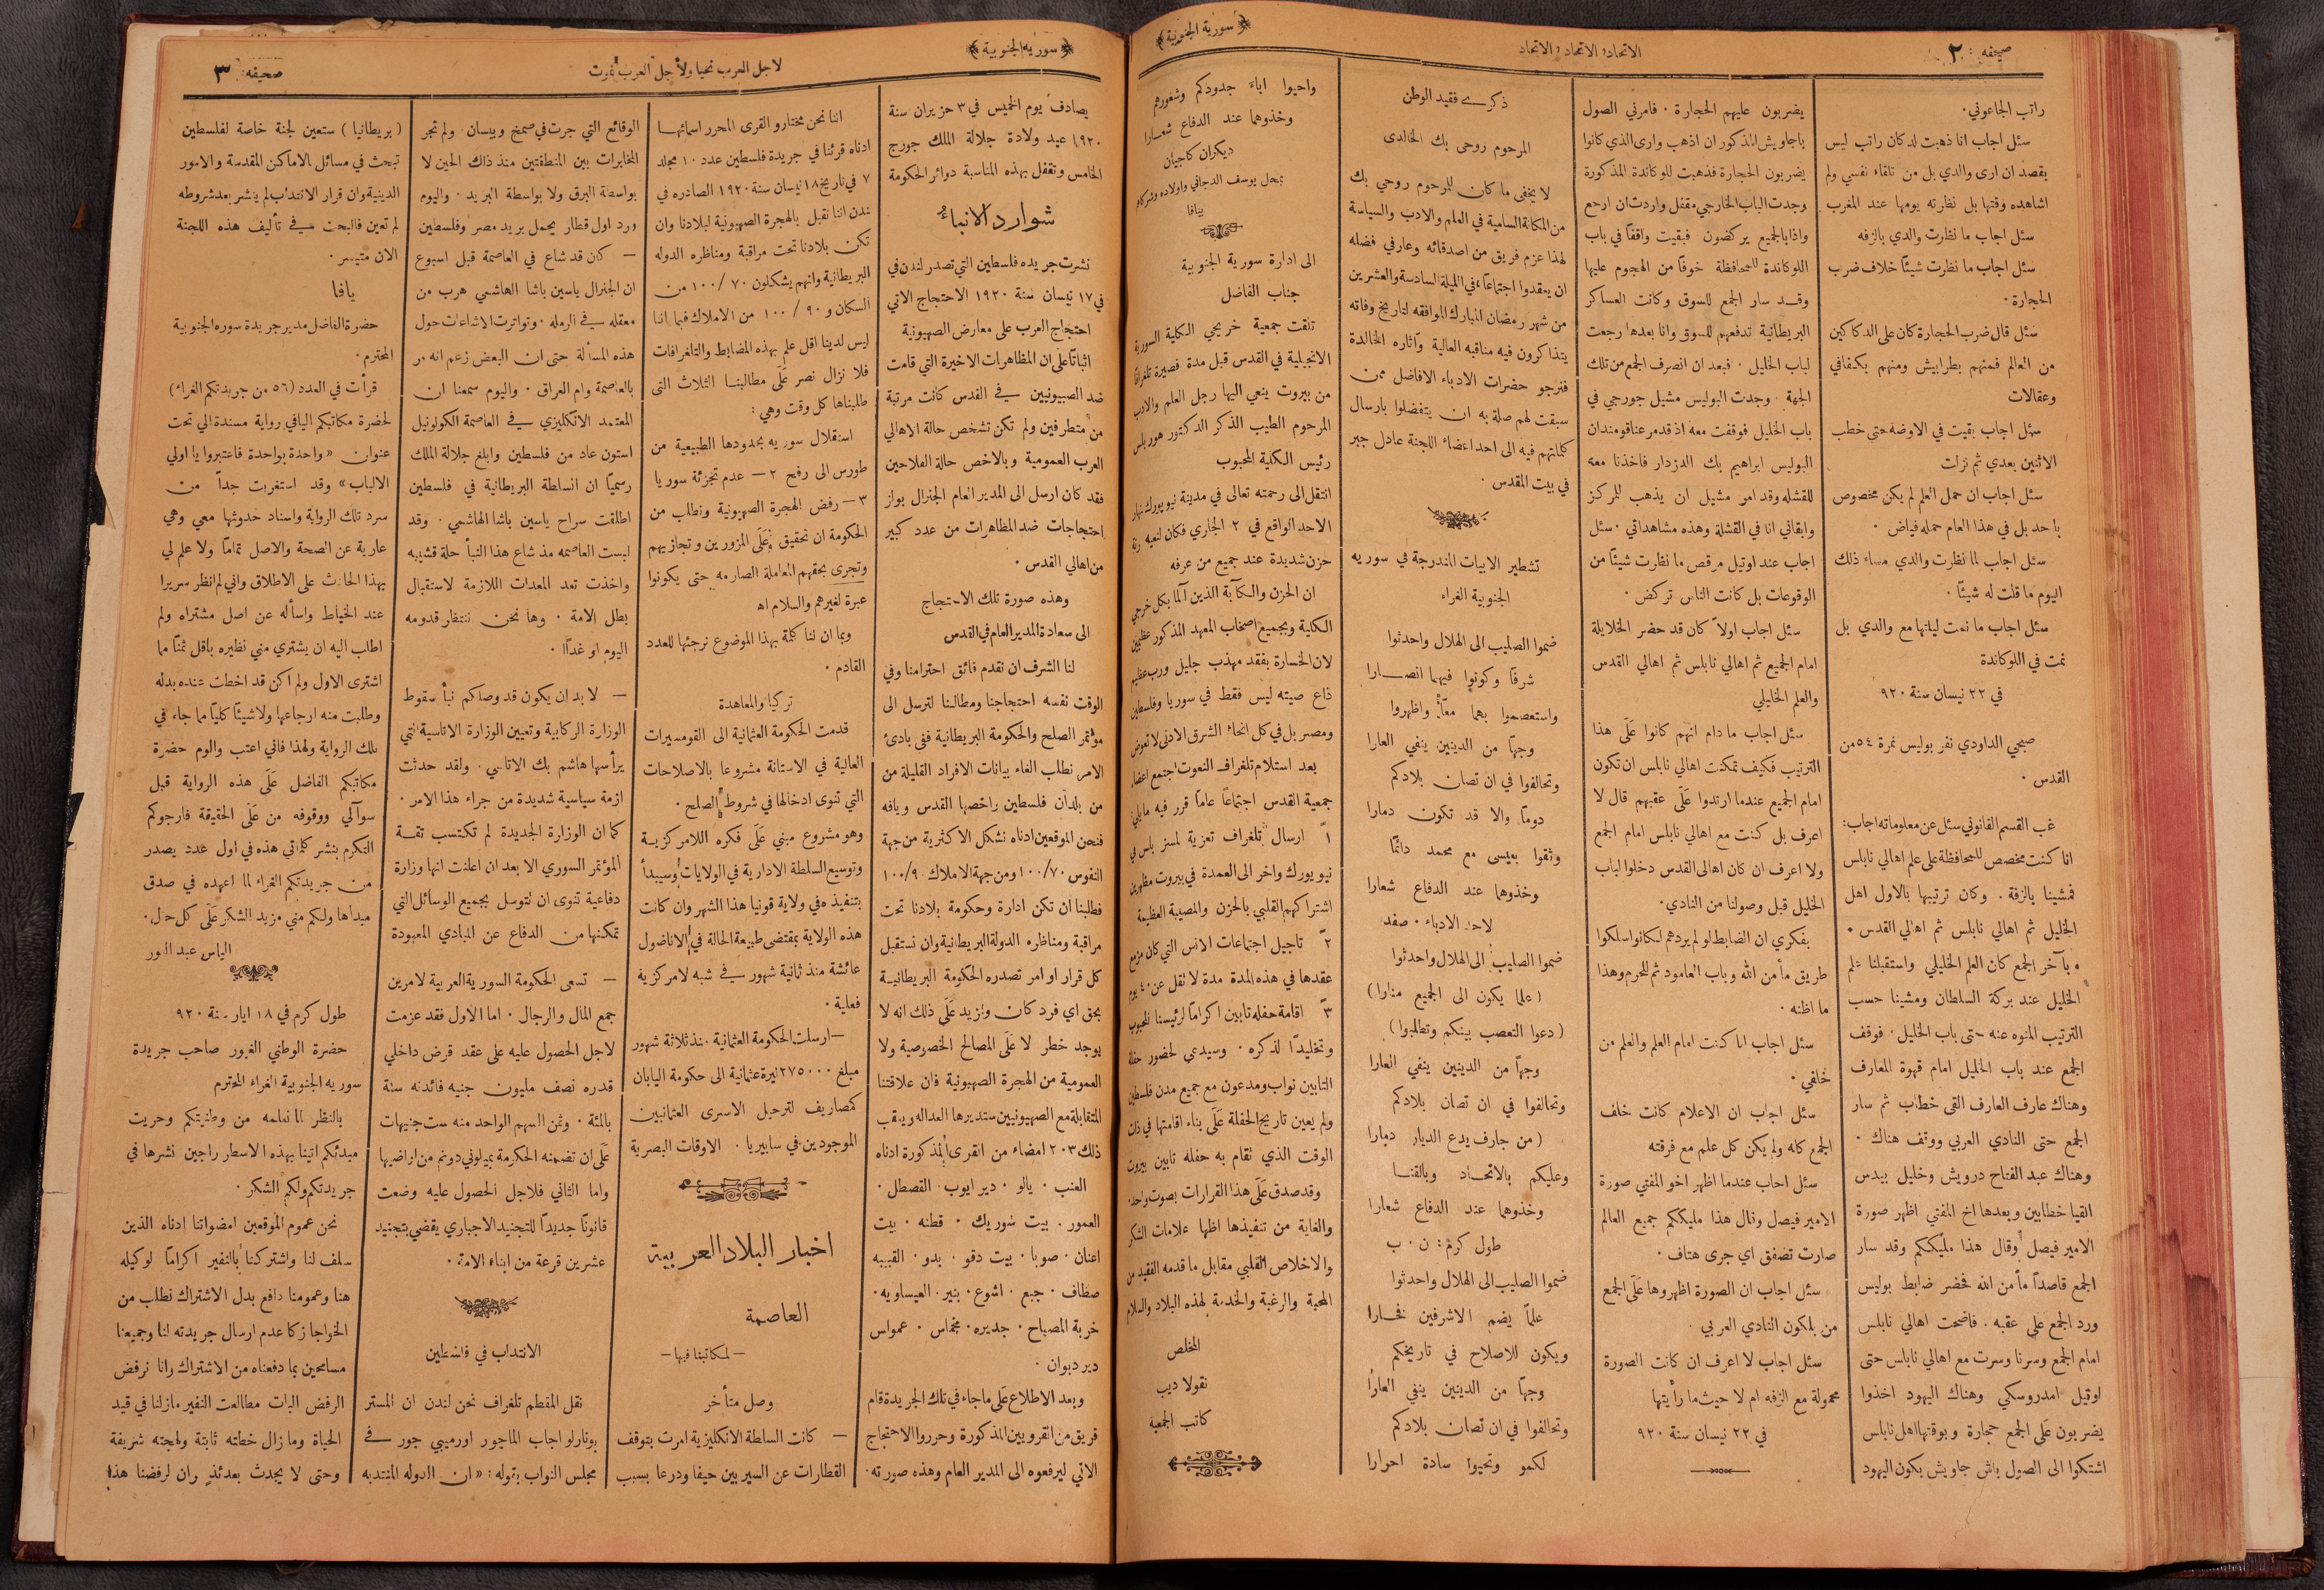 صحيفه : ٢
الاتحاد، الاتحاد، الاتحاد
﴿ سورية الجنوبية ﴾
راتب الجاعوني.
سئل اجاب انا ذهبت لدكان راتب ليس
بقصد ان ارى والدي بل من تلقاء نفسي ولم
اشاهده وقتها بل نظرته يومها عند المغرب
سئل اجاب ما نظرت والدي بالزفه
سئل اجاب ما نظرت شيئًا خلاف ضرب
الحجارة .
سئل قال ضرب الحجارة كان على الدكاكين
من العالم فمنهم بطرابيش ومنهم بكفافي
وعقالات
سئل اجاب بقيت في الاوضة حتى خطب
الاثنين بعدي ثم نزلت
سئل اجاب ان حمل العلم لم يكن مخصوص
باحد بل في هذا العام حمله فياض .
سئل اجاب لما نظرت والدي مساء ذلك
اليوم ما قلت له شيئًا .
سئل اجاب ما نمت ليلتها مع والدي بل
نمت في اللوكاندة
في ٢٢ نيسان سنة ٩٢٠
صبحي الداودي نفر بوليس نمرة ٥٤ من
القدس .
غب القسم القانوني سئل عن معلوماته اجاب:
انا كنت مخصص للمحافظة على علم اهالي نابلس
فمشينا بالزفة . وكان ترتيبها بالاول اهل
الخليل ثم اهالي نابلس ثم اهالي القدس .
وبآخر الجمع كان العلم الخليلي واستقبلنا علم
الخليل عند بركة السلطان ومشينا حسب
الترتيب المنوه عنه حتى باب الخليل . فوقف
الجمع عند باب الخليل امام قهوة المعارف
وهناك عارف العارف القى خطاب ثم سار
الجمع حتى النادي العربي ووقف هناك .
وهناك عبد الفتاح درويش وخليل بيدس
القيا خطابين وبعدها اخ المفتي اظهر صورة
الامير فيصل وقال هذا مليككم وقد سار
الجمع قاصدًا مأمن الله فحضر ضابط بوليس
ورد الجمع على عقبه . فاضحت اهالي نابلس
امام الجمع وسرنا وسرت مع اهالي نابلس حتى
اوتيل امدروسكي وهناك اليهود اخذوا
يضربون على الجمع حجارة وبوقتها اهل نابلس
اشتكوا الى الصول باش جاويش بكون اليهود
يضربون عليهم الحجارة . فامرني الصول
باجاويش المذكور ان اذهب وارى الذي كانوا
يضربون الحجارة فذهبت للوكاندة المذكورة
وجدت الباب الخارجي مقفل واردت ان ارجع
واذا بالجميع يركضون فبقيت واقفًا في باب
اللوكاندة للمحافظة خوفًا من الهجوم عليها
وقد سار الجمع للسوق وكانت العساكر
البريطانية تدفعهم للسوق وانا بعدها رجعت
لباب الخليل . فبعد ان انصرف الجمع من تلك
الجهة وجدت البوليس مشيل جورجي في
باب الخليل فوقفت معه اذ قدم عناقومندان
البوليس ابراهيم بك الدزدار فاخذنا معه
للقشله وقد امر مشيل ان يذهب للمركز
وابقاني انا في القشلة وهذه مشاهداتي . سئل
اجاب عند اوتيل مرقص ما نظرت شيئًا من
الوقوعات بل كانت الناس تركض .
سئل اجاب اولاً كان قد حضر الخلايلة
امام الجميع ثم اهالي نابلس ثم اهالي القدس
والعلم الخليلي
سئل اجاب ما دام انهم كانوا عَلَى هذا
الترتيب فكيف تمكنت اهالي نابلس ان تكون
امام الجميع عندما ارتدوا عَلَى عقبهم قال لا
اعرف بل كنت مع اهالي نابلس امام الجمع
ولا اعرف ان كان اهالي القدس دخلوا لباب
الخليل قبل وصولنا من النادي.
بفكري ان الضابط لو لم يردهم لكانوا سلكوا
طريق مأمن الله وباب العامود ثم للحرم وهذا
ما اظنه .
سئل اجاب انا كنت امام العلم والعلم من
خلفي .
سئل اجاب ان الاعلام كانت خلف
الجمع كله ولم يكن كل علم مع فرقته
سئل اجاب عندما اظهر اخو المفتي صورة
الامير فيصل وقال هذا مليككم جميع العالم
صارت تصفق اي جرى هتاف .
سئل اجاب ان الصورة اظهروها عَلَى الجمع
من بلكون النادي العربي .
سئل اجاب لا اعرف ان كانت الصورة
محمولة مع الزفه ام لا حيث ما رأيتها
في ٢٢ نيسان سنة ٩٢٠
ذكرى فقيد الوطن
المرحوم روحي بك الخالدي
لا يخفى ما كان للمرحوم روحي بك
من المكانة السامية في العلم والادب والسياسة
لهذا عزم فريق من اصدقائه وعارفي فضله
ان يعقدوا اجتماعًا في الليلة السادسة والعشرين
من شهر رمضان المبارك الموافقه لتاريخ وفاته
يتذاكرون فيه مناقبه العالية وآثاره الخالدة
فنرجو حضرات الادباء الافاضل ممن
سبقت لهم صلة به ان يتفضلوا بارسال
كلماتهم فيه الى احد اعضاء اللجنة عادل جبر
في بيت المقدس .
تشطير الابيات المندرجة في سوريه
الجنوبية الغراء
ضموا الصليب الى الهلال واحدثوا
شرفًا وكونوا فيهما انصـــارا
واستعصموا بهما معًا واظهروا
وجهًا من الدينين ينفي العارا
وتحالفوا في ان تصان بلادكم
دومًا والا قد تكون دمارا
وثقوا بعيسى مع محمد دائمًا
وخذوهما عند الدفاع شعارا
لاحد الادباء . صفد
ضموا الصليب الى الهلال واحدثوا
(علما يكون الى الجميع منارا)
(دعوا التعصب بينكم وتطلبوا)
وجهًا من الدينين ينفي العارا
وتحالفوا في ان تصان بلادكم
(من جارف يدع الديار دمارا
وعليكم بالاتحاد وبالقنـا
وخذوهما عند الدفاع شعارا
طول كرم: ن . ب
ضموا الصليب الى الهلال واحدثوا
علمًا يضم الاشرفين فخـارا
ويكون للاصلاح في تاريخكم
وجهًا من الدينين ينفي العارا
وتحالفوا في ان تصان بلادكم
لكمو وتحيوا سادة احرارا
واحيوا اباءَ جدودكم وشعورهم
وخذوهما عند الدفاع شعـارا
ديكران كاجيان
بمحل يوسف الدجاني واولاده وشركاه
بيافا
الى ادارة سورية الجنوبية
جناب الفاضل
تلقت جمعية خريجي الكلية السورية
الانجيلية في القدس قبل مدة قصيرة تلغرافًا
من بيروت ينعي اليها رجل العلم والادب
المرحوم الطيب الذكر الدكتور هورد بلس
رئيس الكلية المحبوب
انتقل الى رحمته تعالى في مدينة نيويورك نهار
الاحد الواقع في ٢ الجاري فكان لنعيه رنة
حزن شديدة عند جميع من عرفه
ان الحزن والكآبة الذين آلما بكل خريجي
الكلية وبجميع اصحاب المعهد المذكور عظيمين
لان الخسارة بفقد مهذب جليل ورب عظيم
ذاع صيته ليس فقط في سوريا وفلسطين
ومصر بل في كل انحاء الشرق الادنى لا تعوض
بعد استلام تلغراف النعوت اجتمع اعضاء
جمعية القدس اجتماعًا عامًا قرر فيه ما يلي:
١ً ارسال تلغراف تعزية لمسز بلس في
نيويورك واخر الى العمدة في بيروت مظهرين
اشتراكهم القلبي بالحزن والمصيبة العظيمة
٢ً تاجيل اجتماعات الانس التي كان مزمع
عقدها في هذه المدة مدة لا تقل عن ٤٠ يوم
٣ً اقامة حفله تابين اكرامًا لرئيسنا المحبوب
وتخليدًا لذكره . وسيدعى لحضور حفلة
التابين نواب ومدعون مع جميع مدن فلسطين
ولم يعين تاريخ الحفلة عَلَى بناء اقامتها في ذات
الوقت الذي تقام به حفله تابين بيروت
وقد صدق عَلَى هذا القرارات بصوت واحد.
والغاية من تنفيذها اظهار علامات الشكر
والاخلاص القلبي مقابل ما قدمه الفقيد من
المحبة والرغبة والخدمة لهذه البلاد والسلام
المخلص
نقولا ديب
كاتب الجمعيه
﴿ سورية الجنوبية ﴾
لاجل العرب نحيا ولأجل العرب نموت
صحيفه: ٣
يصادف يوم الخميس في ٣ حزيران سنة
١٩٢٠ عيد ولادة جلالة الملك جورج
الخامس وتقفل بهذه المناسبة دوائر الحكومة
شوارد الانباء
نشرت جريده فلسطين التي تصدر لندن في
في ١٧ نيسان سنة ١٩٢٠ الاحتجاج الاتي
احتجاج العرب على معارض الصهيونية
اثباتًا على ان المظاهرات الاخيرة التي قامت
ضد الصهيونيين في القدس كانت مرتبة
من متطرفين ولم تكن تشخص حالة الاهالي
العرب العمومية وبالاخص حالة الفلاحين
فقد كان ارسل الى المدير العام الجنرال بولز
احتجاجات ضد المظاهرات من عدد كبير
من اهالي القدس .
وهذه صورة تلك الاحتجاج
الى سعادة المدير العام في القدس
لنا الشرف ان نقدم فائق احترامنا وفي
الوقت نفسه احتجاجنا ومطالبنا لترسل الى
مؤتمر الصلح والحكومة البريطانية ففي بادئ
الامر نطلب الغاء بيانات الافراد القليلة من
من بلدان فلسطين راخصها القدس ويافه
فنحن الموقعين ادناه نشكل الاكثرية من جهة
النفوس ١٠٠/٧٠ ومن جهة الاملاك ١٠٠/٩٠
فطلبنا ان تكن ادارة وحكومة بلادنا تحت
مراقبة ومناظره الدولة البريطانية وان نستقبل
كل قرار او امر تصدره الحكومة البريطانيـة
بحق اي فرد كان ونزيد عَلَى ذلك انه لا
يوجد خطر لا عَلَى المصالح الخصوصية ولا
العمومية من الهجرة الصهيونية فان علاقتنا
المتقابلة مع الصهيونيين ستديرها العدالة ويعقب
ذلك ٢٠٣ امضاء من القرى المذكورة ادناه
العنب . يالو . دير ايوب . القصطل .
العمور . بيت شوريك . قطنه . بيت
اعنان . صوبا . بيت دقو . بدو . القبيبه
صظاف . جبع . اشوع . بنير . العيساويه.
خربة المصباح . جديره . مخماس . عمواس
دير دبوان .
وبعد الاطلاع عَلَى ما جاء في تلك الجريدة قام
فريق من القرويين المذكورة وحرروا الاحتجاج
الاتي ليرفعوه الى المدير العام وهذه صورته.
اننا نحن مختارو القرى المحرر اسمائهـا
ادناه قرئنا في جريدة فلسطين عدد ١٠ مجلد
٧ في تاريخ ١٨ نيسان سنة ١٩٢٠ الصادره في
لندن اننا نقبل بالهجرة الصهيونية لبلادنا وان
تكن بلادنا تحت مراقبة ومناظره الدوله
البريطانية وانهم يشكلون ٧٠ / ١٠٠ من
السكان و ٩٠ / ١٠٠ من الاملاك فبما اننا
ليس لدينا اقل علم بهذه المضابط والتلغرافات
فلا نزال نصر عَلَى مطالبنـا الثلاث التي
طلبناها كل وقت وهي :
استقلال سوريه بحدودها الطبيعية من
طورس الى رفح ٢ – عدم تجزئة سوريا
٣ – رفض الهجرة الصهيونية ونطلب من
الحكومة ان تحقيق عَلَى المزورين وتجازيهم
وتجرى بحقهم المعاملة الصارمه حتى يكونوا
عبرة لغيرهم والسلام اه
وبما ان لنا كلمة بهذا الموضوع نرجئها للعدد
القادم .
تركيا والمعاهدة
قدمت الحكومة العثمانية الى القومسيرات
العالية في الاستانة مشروعا بالاصلاحات
التي تنوى ادخالها في شروط الصلح .
وهو مشروع مبني عَلَى فكره اللامركزيـة
وتوسيع السلطة الادارية في الولايات وسيبدأ
بتنفيذه في ولاية قونيا هذا الشهر وان كانت
هذه الولاية بمقتضى طبيعة الحالة في الاناضول
عائشة منذ ثمانية شهور في شبه لامركزية
فعلية .
– ارسلت الحكومة العثمانية منذ ثلاثة شهور
مبلغ ٢٧٥٠٠٠ ليرة عثمانية الى حكومة اليابان
كمصاريف لترحيل الاسرى العثمانيين
الموجودين في سايبريا . الاوقات البصرية
اخبار البلاد العربية
العاصمة
– لمكاتبنا فيها –
وصل متأخر
– كانت السلطة الانكليزية امرت بتوقف
القطارات عن السير بين حيفا ودرعا بسبب
الوقائع التي جرت في صمخ وبيسان . ولم تجر
المخابرات بين المنطقتين منذ ذاك الحين لا
بواسطة البرق ولا بواسطة البريد . واليوم
ورد اول قطار يحمل بريد مصر وفلسطين
– كان قد شاع في العاصمة قبل اسبوع
ان الجنرال ياسين باشا الهاشمي هرب من
معقله في الرمله . وتواترت الاشاعات حول
هذه المسألة حتى ان البعض زعم انه مر
بالعاصمة وام العراق . واليوم سمعنا ان
المعتمد الانكليزي في العاصمة الكولونيل
استون عاد من فلسطين وابلغ جلالة الملك
رسميًا ان السلطة البريطانية في فلسطين
اطلقت سراح ياسين باشا الهاشمي . وقد
لبست العاصمه مذ شاع هذا النبأ حلة قشيبه
واخذت تعد المعدات اللازمة لاستقبال
بطل الامة . وها نحن ننتظر قدومه
اليوم او غدًا .
– لا بد ان يكون قد وصلكم نبأ سقوط
الوزارة الركابية وتعيين الوزارة الاتاسية التي
يرأسها هاشم بك الاتاسي . ولقد حدثت
ازمة سياسية شديدة من جراء هذا الامر .
كما ان الوزارة الجديدة لم تكتسب ثقـة
المؤتمر السوري الا بعد ان اعلنت انها وزارة
دفاعية تنوى ان تتوسل بجميع الوسائل التي
تمكنها من الدفاع عن المبادي المعهودة
– تسعى الحكومة السورية العربية لامرين
جمع المال والرجال . اما الاول فقد عزمت
لاجل الحصول عليه على عقد قرض داخلي
قدره نصف مليون جنيه فائدته ستة
بالمئة . وثمن السهم الواحد منه ست جنيهات
عَلَى ان تضمنه الحكومة بمليوني دونم من اراضيها
واما الثاني فلاجل الحصول عليه وضعت
قانونًا جديدًا للتجنيد الاجباري يقضي بتجنيد
عشرين قرعة من ابناء الامة .
الانتداب في فلسطين
نقل المقطم تلغراف نحن لندن ان المستر
بونارلو اجاب الماجور اورميبي جور في
مجلس النواب بقوله : « ان الدوله المنتدبه
( بريطانيا ) ستعين لجنة خاصة لفلسطين
تبحث في مسائل الاماكن المقدسة والامور
الدينية وان قرار الانتداب لم ينشر بعد شروطه
لم تعين فالبحث في تأليف هذه اللجنة
الان متيسر .
يافا
حضرة الفاضل مدير جريدة سوره الجنوبية
المحترم .
قرأت في العدد (٥٦ من جريدتكم الغراء)
لحضرة مكاتبكم اليافي رواية مسندة الي تحت
عنوان « واحدة بواحدة فاعتبروا يا اولي
الالباب » وقد استغربت جداً من
سرد تلك الرواية واسناد حدوثها معي وهي
عارية عن الصحة والاصل تمامًا ولا علم لي
بهذا الحادث على الاطلاق واني لم انظر سريرا
عند الخياط واسأله عن اصل مشتراه ولم
اطلب اليه ان يشتري مني نظيره باقل ثمنًا مما
اشترى الاول ولم اكن قد اخطت عنده بدله
وطلبت منه ارجاعها ولا شيئًا كليًا مما جاء في
تلك الرواية ولهذا فاني اعتب والوم حضرة
مكاتبكم الفاضل عَلَى هذه الرواية قبل
سوآلي ووقوفه من عَلَى الحقيقة فارجوكم
التكرم بنشر كلماتي هذه في اول عدد يصدر
من جريدتكم الغراء لما اعهده في صدق
مبدأها ولكم مني مزيد الشكر عَلَى كل حال.
الياس عبد النور
طول كرم في ١٨ ايار سنة ٩٢٠
حضرة الوطني الغيور صاحب جريدة
سوريه الجنوبية الغراء المحترم
بالنظر لما نعلمه من وطنيتكم وحريت
مبدئكم اتينا بهذه الاسطر راجين نشرها في
جريدتكم ولكم الشكر .
نحن عموم الموقعين امضواتنا ادناه الذين
سلف لنا واشتركنا بالنفير اكرامًا لوكيله
هنا وعمومنا دافع بدل الاشتراك نطلب من
الخواجا زكا عدم ارسال جريدته لنا وجميعنا
مسامحين بما دفعناه من الاشتراك واننا نرفض
الرفض البات مطالعت النفير مازلنا في قيد
الحياة وما زال خطته ثابتة ولهجته شريفة
وحتى لا يحدث بعدئذٍ وان لرفضنا هذا